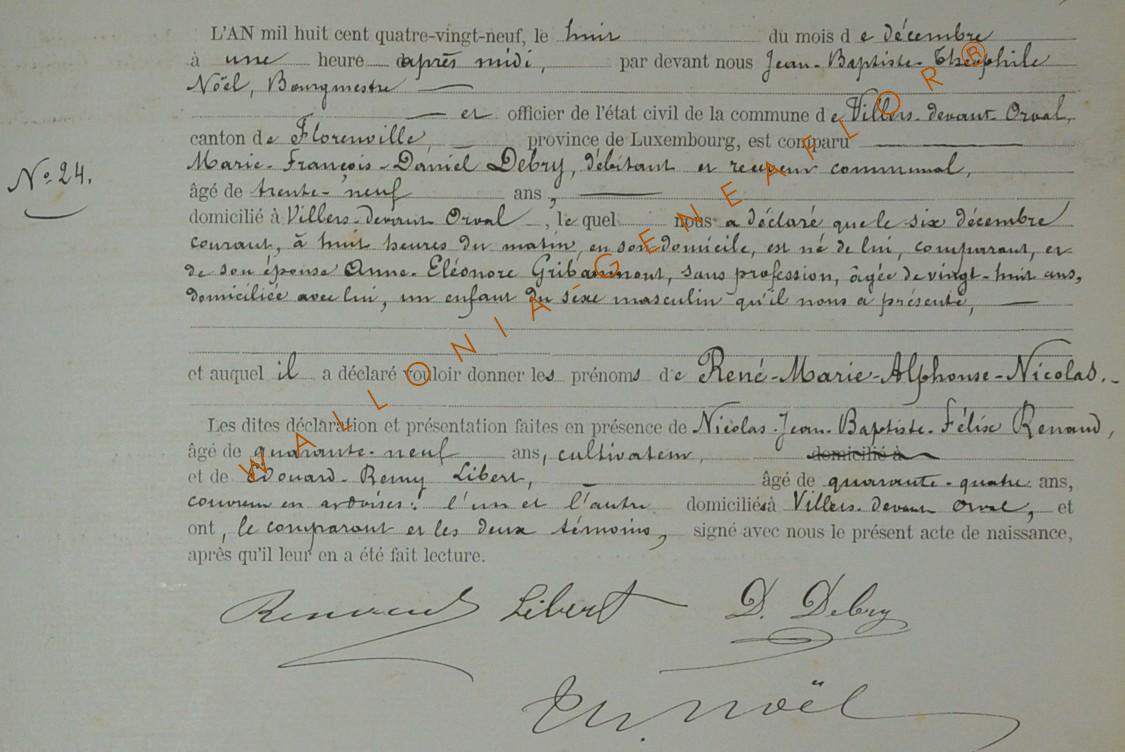 L'AN mil huit cent quatre-vingt-neuf, le huit du mois de décembre
à une heure après midi, par devant nous Jean-Baptiste-Théophile
Noël, Bourgmestre
et officier de l'état civil de la commune de Villers-devant-Orval,
canton de Florenville, province de Luxembourg, est comparu
Marie-François-Daniel Debry, débitant et receveur communal,
No 24.
âgé de trente-neuf ans,
domicilié à Villers-devant Orval, le quel nous a déclaré que le six décembre
courant, à huit heures du matin, en son domicile, est né de lui, comparant, et
de son épouse Anne-Eléonore Gribaumont, sans profession, âgée de vingt-huit ans,
domiciliée avec lui, un enfant du sexe masculin qu'il nous a présenté,
et auquel il a déclaré vouloir donner les prénoms de René-Marie-Alphonse-Nicolas.
Les dites déclaration et présentation faites en présence de Nicolas-Jean-Baptiste-Félix Renaud,
âgé de quarante-neuf ans, cultivateur, domicilié à
et de Edouard-Remy Libert, âgé de quarante-quatre ans,
couvreur en ardoises: l'un et l'autre domiciliés à Villers-devant Orval, et
ont, le comparant et les deux témoins, signé avec nous le présent acte de naissance,
après qu'il leur en a été fait lecture.
Renaud Libert D. Debry
Th. Noël
WALLONIA GENEAFLORB